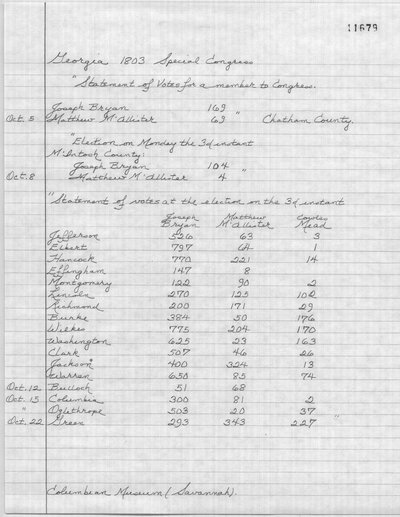 11679
Georgia 1803 Special Congress
"Statement of Votes for a member to Congress.
Joseph Bryan 169
Oct. 5 Matthew McAllister 63 " Chatham County.
"Election on Monday the 3d instant
McIntosh County:
Joseph Bryan 104
Oct. 8 Matthew McAllister 4 "
"Statement of votes at the election on the 3d instant
Joseph Matthew Cowles
Bryan McAllister Mead
Jefferson 526 63 3
Elbert 797 64 1
Hancock 770 221 14
Effingham 147 8
Montgomery 122 90 2
Lincoln 270 125 102
Richmond 200 171 29
Burke 384 50 176
Wilkes 775 204 170
Washington 625 23 163
Clark 507 46 26
Jackson 400 324 13
Warren 650 85 74
Oct. 12 Bulloch 51 68
Oct. 15 Columbia 300 81 2
" Oglethrope 503 20 37
Oct. 22 Green 293 343 227 "
Columbian Museum (Savannah).